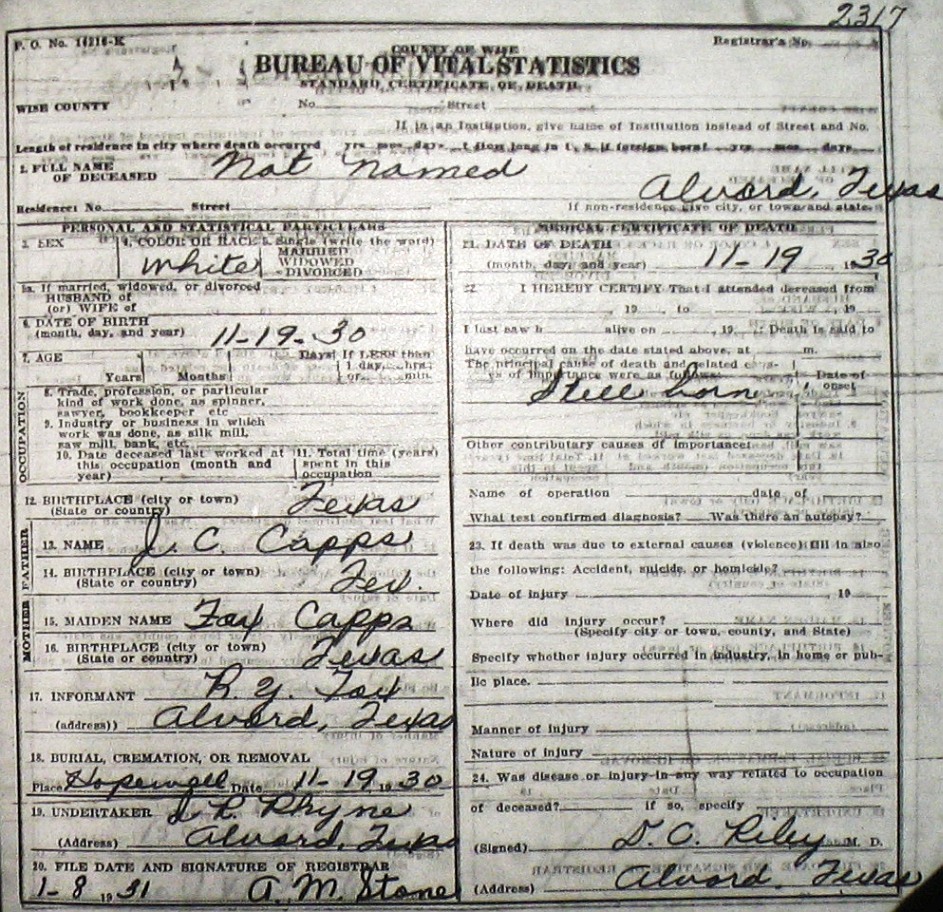 2317
F. O. No. 14216-K
Registrar's No.
COUNTY OF WISE
BUREAU OF VITAL STATISTICS
STANDARD CERTIFICATE OF DEATH
WISE COUNTY No. Street
If in an Institution, give name of Institution instead of Street and No.
Length of residence in city where death occurred yrs mos days How long in U. S. if foreign born? yrs mos days
1. FULL NAME OF DECEASED Not Named
Alvord, Texas
Residence: No. Street If non-residence give city, or town and state
PERSONAL AND STATISTICAL PARTICULARS
3. SEX 4. COLOR OR RACE 5. Single (write the word)
MARRIED
white WIDOWED
DIVORCED
5a. If married, widowed, or divorced
HUSBAND of
(or) WIFE of
6. DATE OF BIRTH
(month, day, and year) 11-19-30
7. AGE Days If LESS than
1 day, hrs.
Years Months or min.
OCCUPATION
8. Trade, profession, or particular
kind of work done, as spinner,
sawyer, bookkeeper etc
9. Industry or business in which
work was done, as silk mill,
saw mill, bank, etc.
10. Date deceased last worked at 11. Total time (years)
this occupation (month and spent in this
year) occupation
12. BIRTHPLACE (city or town)
(State or country) Texas
FATHER
13. NAME J. C. Capps
14. BIRTHPLACE (city or town)
(State or country) Tex
MOTHER
15. MAIDEN NAME Fox Capps
16. BIRTHPLACE (city or town)
(State or country) Texas
17. INFORMANT R. Y. Fox
(address)) Alvord, Texas
18. BURIAL, CREMATION, OR REMOVAL
Place Hopewell Date 11-19 1930
19. UNDERTAKER J R. Rhyne
(Address) Alvord, Texas
20. FILE DATE AND SIGNATURE OF REGISTRAR
1-8 1931 A. M. Stone
MEDICAL CERTIFICATE OF DEATH
21. DATE OF DEATH
(month, day, and year) 11-19, 1930
22. I HEREBY CERTIFY That I attended deceased from
, 19 to , 19
I last saw h alive on , 19 Death is said to
have occurred on the date stated above, at m.
The principal cause of death and related causes of importance were as follows: Date of onset
Still born
Other contributary causes of importance:
Name of operation date of
What test confirmed diagnosis? Was there an autopsy?
23. If death was due to external causes (violence) fill in also
the following: Accident, suicide, or homicide?
Date of injury , 19
Where did injury occur?
(Specify city or town, county, and State)
Specify whether injury occurred in industry, in home or pub-
lic place.
Manner of injury
Nature of injury
24. Was disease or injury in any way related to occupation
of deceased? if so, specify
(Signed) D. C. Riley M. D.
(Address) Alvord, Texas